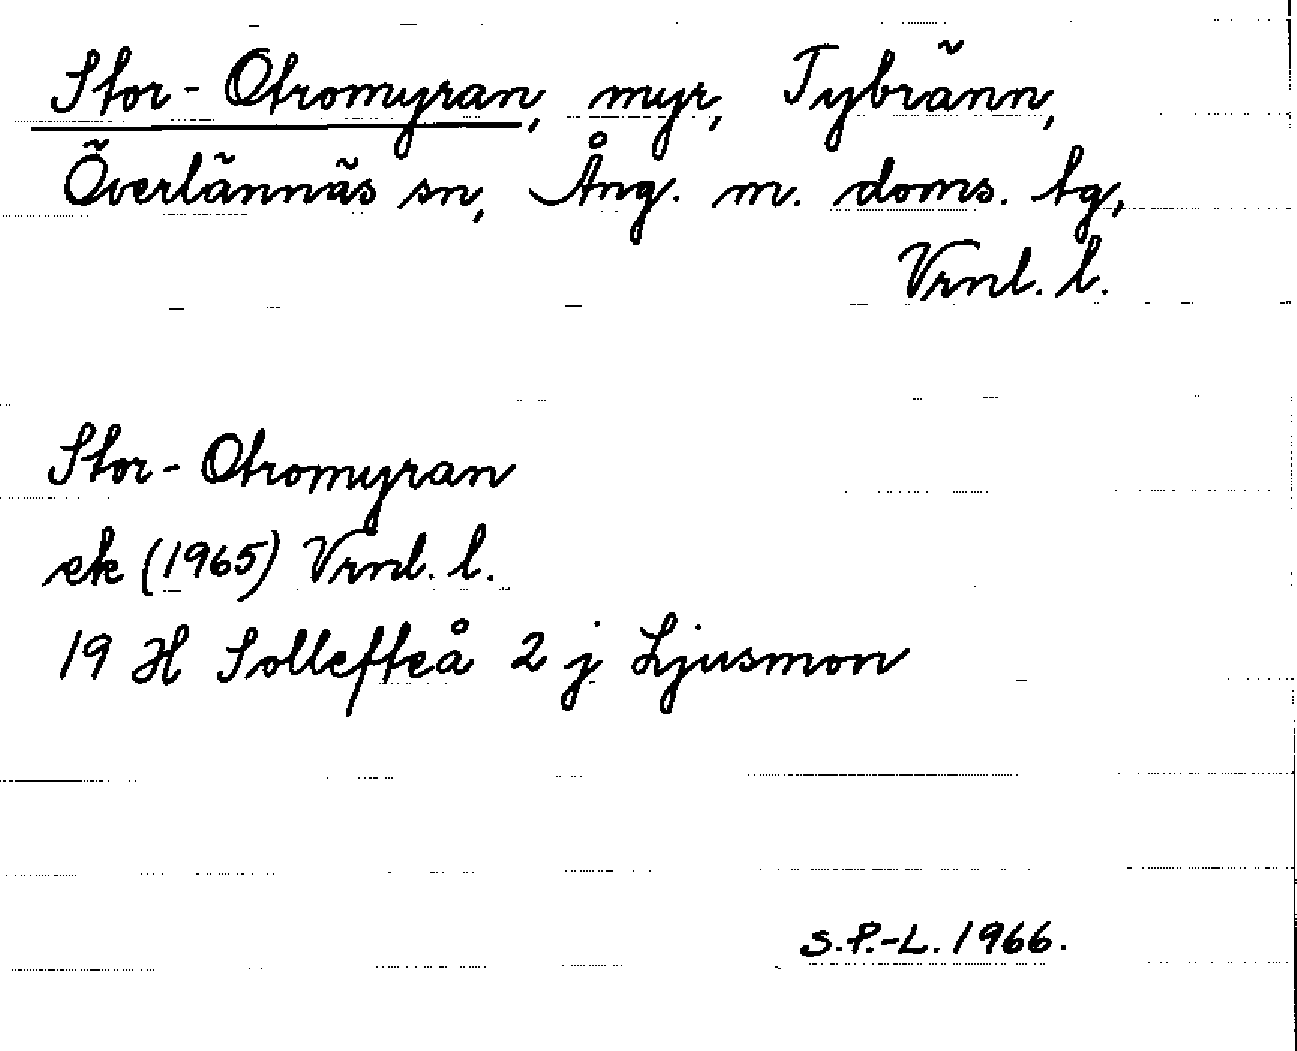 Stor-Otromyran, myr, Tybränn,
Överlännäs sn, Ång. m. doms. tg,
Vrnl. l.
Stor-Otromyran
ek (1965) Vrnl. l.
19 H Sollefteå 2 j Ljusmon
S.P.-L. 1966.